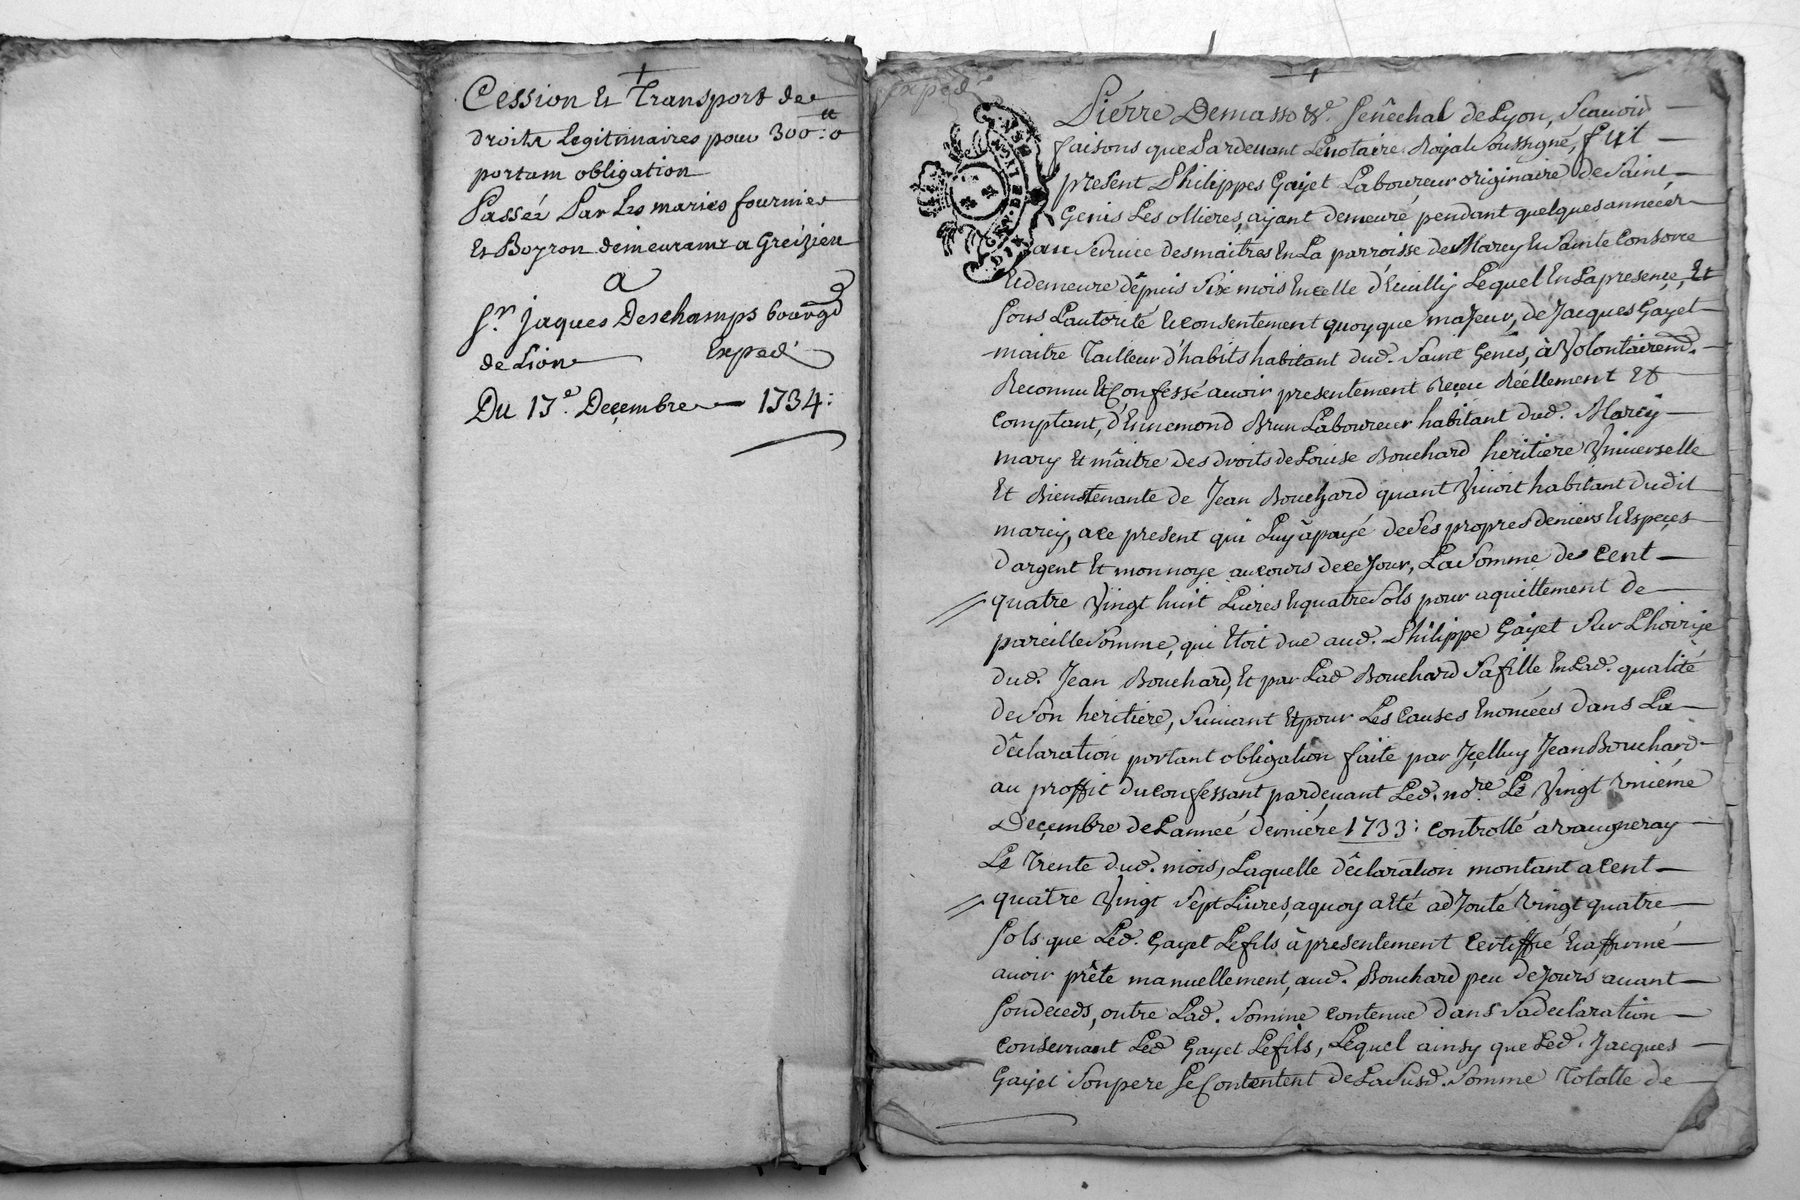 Cession et Transport de
droits Legitimaires pour 300:tt o
portam obligation
Passée Par Les mariés fournier
et Boyron demeurants a Greizieu
a
Sr. Jaques Deschamps bourgd
de Lion Expedé
Du 17e. Deçembre 1734:
Expedé
Pierre Demasso &c. Senêchal de Lyon, Scavoir
faisons que Pardevant Le notaire Roijal Soussigné, fut
present Philippes Gaijet Laboureur originaire de Saint
Genis Les ollieres, aijant demeuré pendant quelques années
au Service des maitres En La parroisse de Marcy Et Sainte Consorce
Et demeure dêpuis Six mois En celle d'Ecuilly Lequel En La presençe, Et
Sous L'autorité Et consentement quoy que majeur, de Jacques Gayet
maitre Tailleur d'habits habitant dud. Saint Genis, à Volontairemd.
Reconnu Et Confessé avoir presentement Reçeu Réellement Et
Comptant, d'Ennemond Brun Laboureur habitant dud. Marcÿ
mary Et mâitre des droits de Louise Bouchard heritiere Universelle
Et Bienstenante de Jean Bouchard quant Vivoit habitant dudit
marcy, a ce present qui Luy à payé de Ses propres deniers En Especes
d'argent Et monnoye au cours de ce Jour, La Somme de Cent
quatre Vingt huit Livres Et quatre Sols pour aquittement de
pareille Somme, qui Etoit due aud. Philippe Gaijet Sur L'hoirije
dud. Jean Bouchard, Et par Lad Bouchard Sa fille En Lad. qualité
de Son heritiere, Suivant Et pour Les Causes Enoncées dans La
dêclaration portant obligation faite par Jçelluy Jean Bouchard
au proffit du confessant pardevant Led. nore. Le Vingt Uniéme
Deçembre de L'année derniere 1733: Controllé a Vaugneray
Le Trente dud. mois, Laquelle dêclaration montant a Cent
quatre Vingt Sept Livres, a quoy a Eté adJouté Vingt quatre
Sols que Led. Gayet Le fils à presentement Certiffié Et affirmé
avoir prêté manuellement, aud. Bouchard peu de Jours avant
Son deceds, outre Lad. Somme Contenue dans Sa declaration
Consernant Led Gayet Le fils, Lequel ainsy que Led. Jacques
Gayet Son pere Se Contentent de La Susd. Somme Totalle de